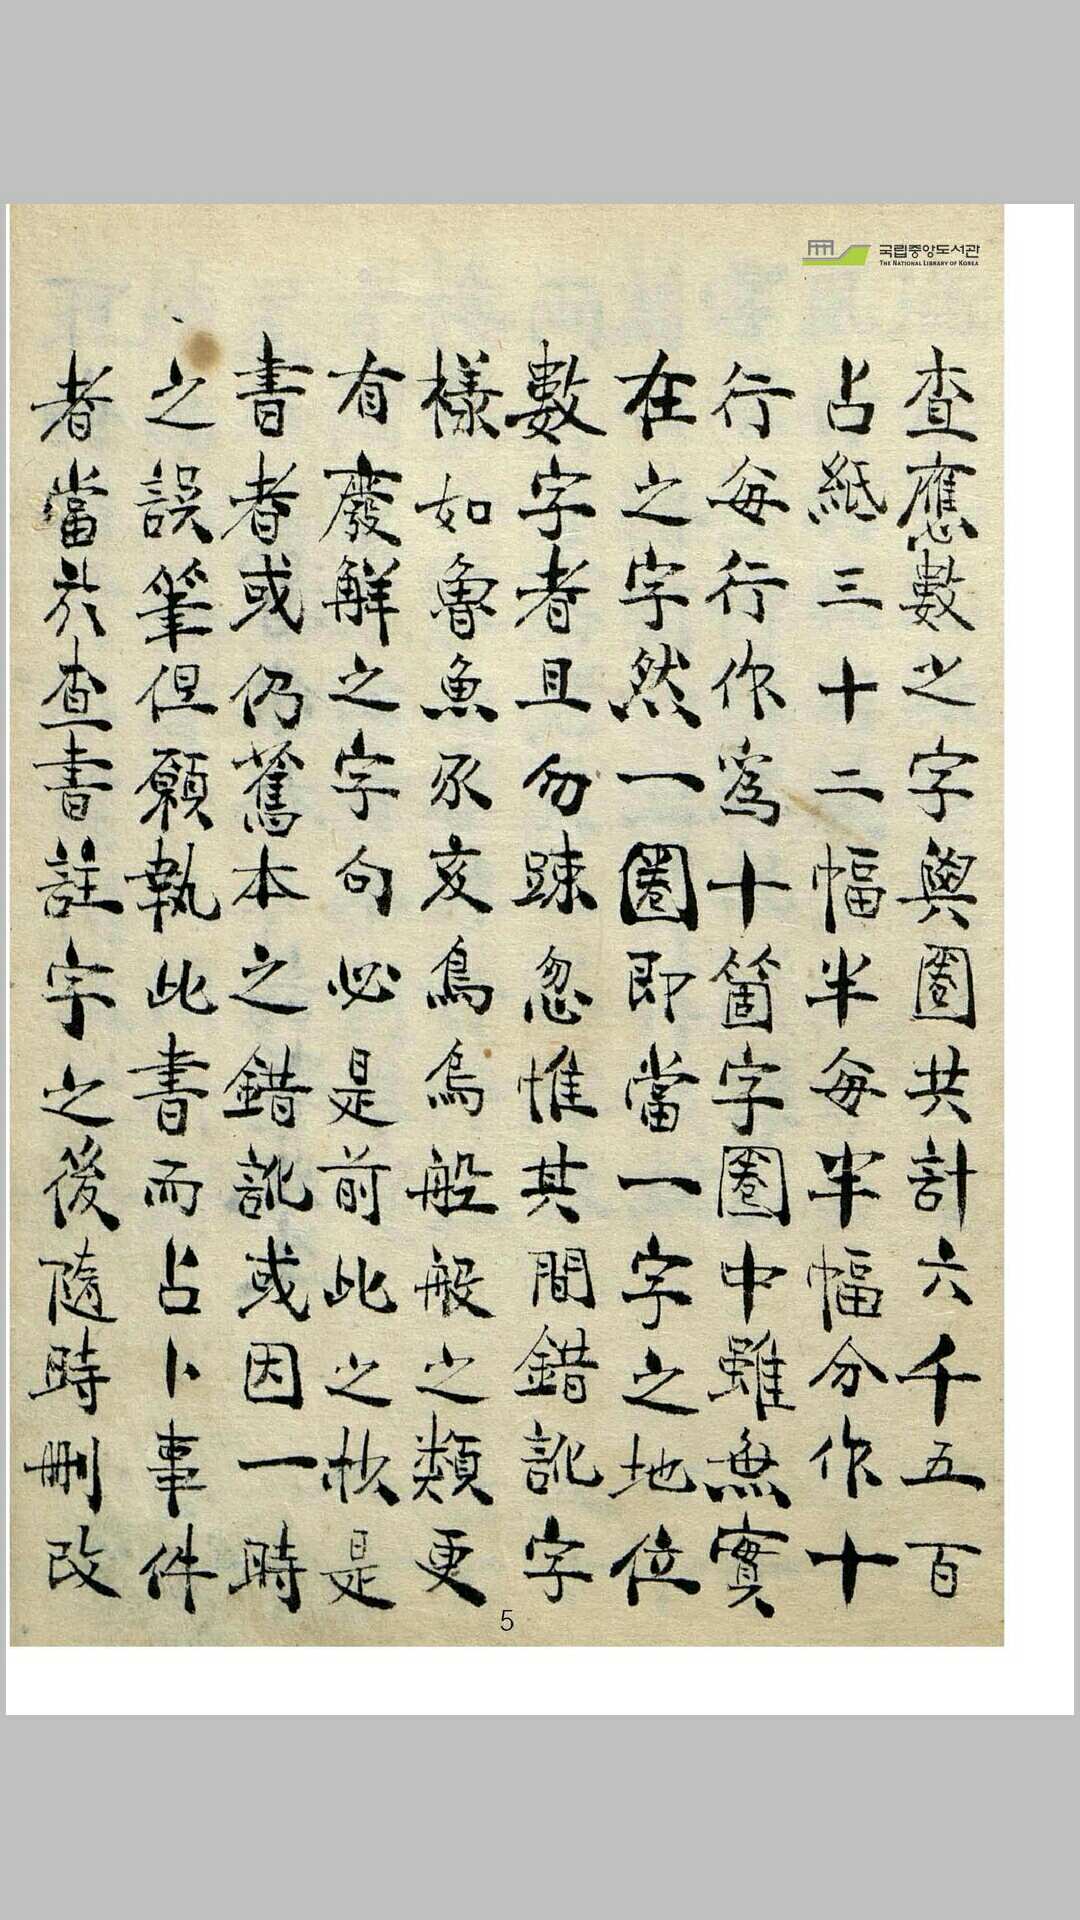 국립중앙도서관
THE NATIONAL LIBRARY OF KOREA
查應數之字與圈共計六千五百
占紙三十二幅半每半幅分作十
行每行作爲十箇字圈中雖無實
在之字然一圈卽當一字之地位
數字者且勿疎忽惟其間錯訛字
樣如魯魚豕亥鳥烏般般之類更
有廢解之字句必是前此之杴是
書者或仍舊本之錯訛或因一時
之誤筆但願執此書而占卜事件
者當於查書註字之後隨時刪改
5